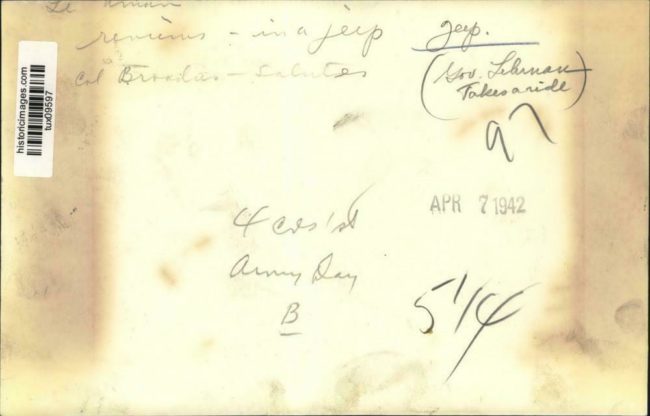 reviews - in a jeep
Col Broadas - Salutes
jeep.
(Gov. Lehman
Takes a ride)
97
historicimages.com
tux09597
APR 7 1942
4 cols
Army Day
B
5 1/4